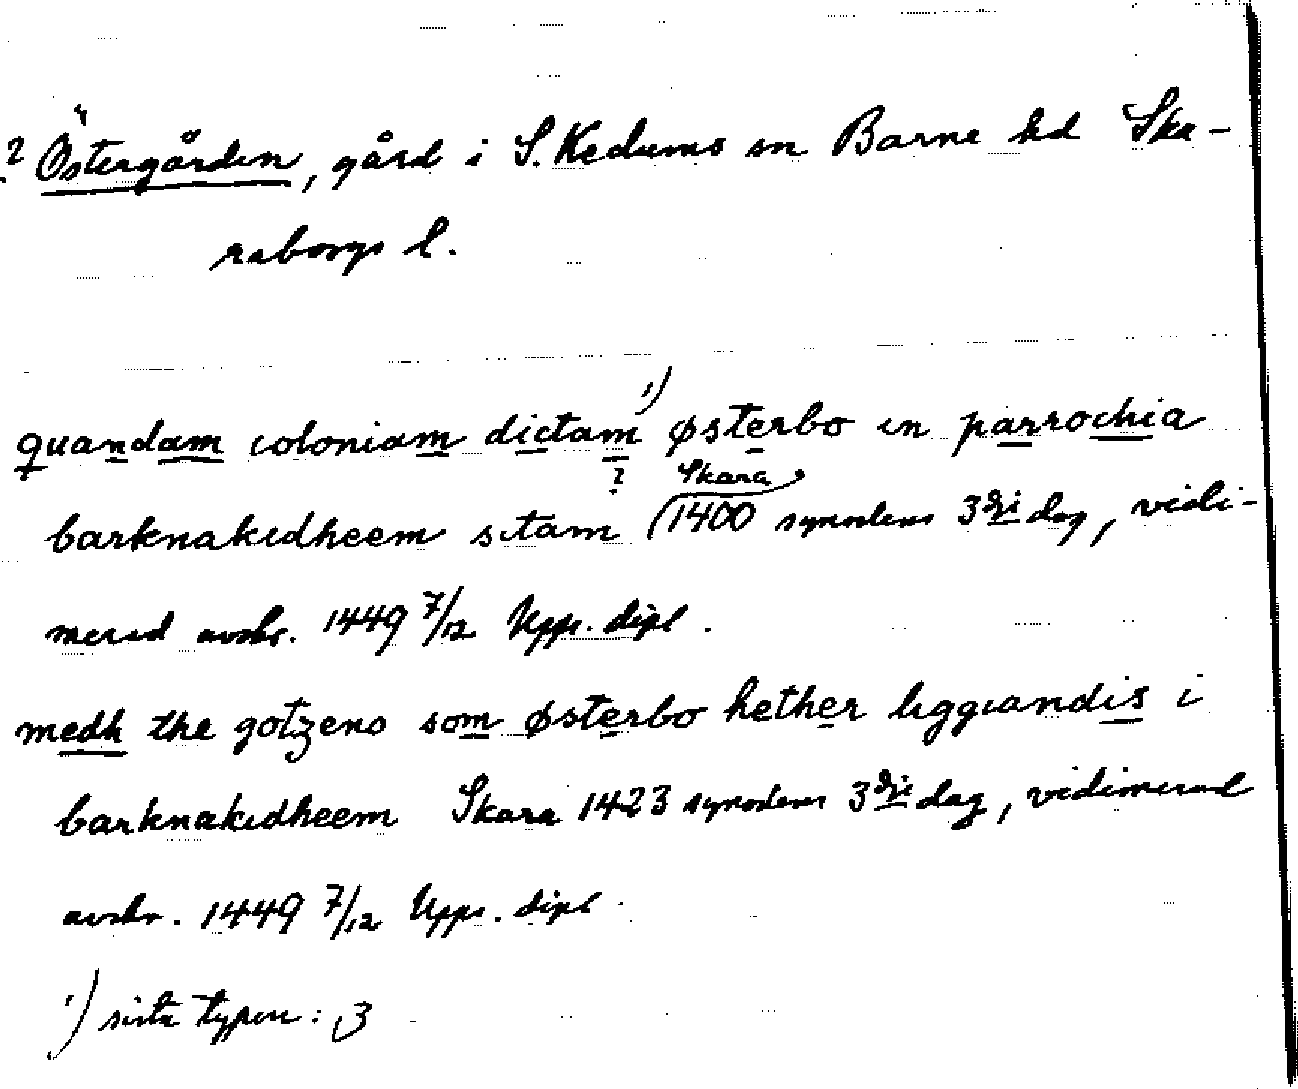 ? Östergården, gård i S. Kedums sn Barne hd Ska-
raborgs l.
quandam coloniam dictam ¹) østerbo in parrochia
? Skara
barknakidheem sitam (1400 synodens 3dje dag, vidi-
merad avskr. 1449 7/12 Upps. dipl.
medh the gotzeno som østerbo hether liggiandis i
barknakidheem Skara 1423 synodens 3dje dag, vidimerad
avskr. 1449 7/12 Upps. dipl.
¹) sista typen: ȝ